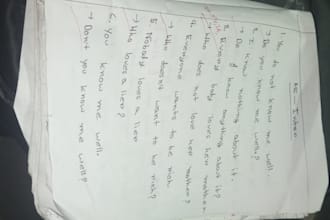 1. You do not know me well.
→ Do you know me well?
2. I know nothing about it.
→ Do I know anything about it?
3. Every body loves her mother
→ Who does not love her mother?
4. Everyone wants to be rich.
→ Who doesn't want to be rich?
5. Nobody loves a lier
→ Who loves a lier
6. You know me well.
→ Don't you know me well?